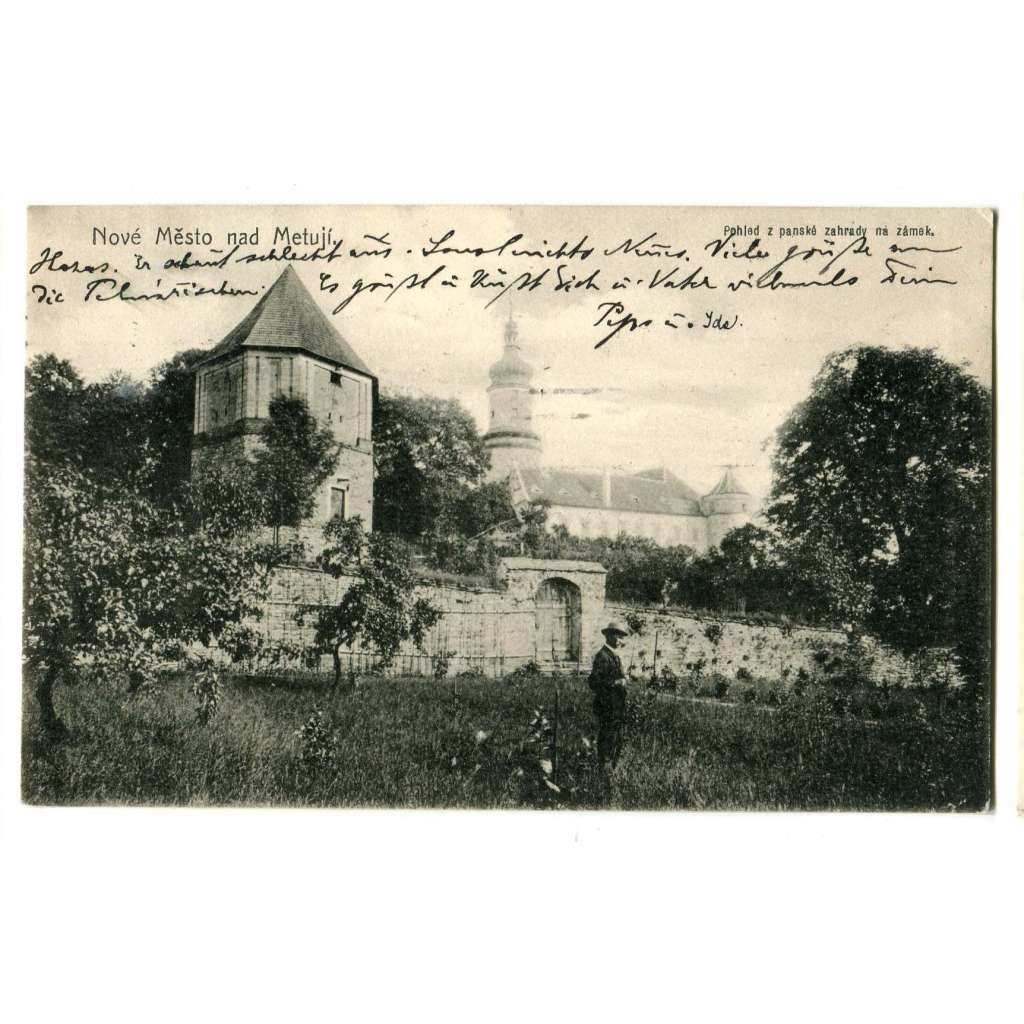 Nové Město nad Metují.
Pohled z panské zahrady na zámek.
Er schaut schlecht aus. Sonst nichts Neues. Viele Grüße an
die Es grüßt u küßt Dich u. Vater vielmals Deine
u. Ida.